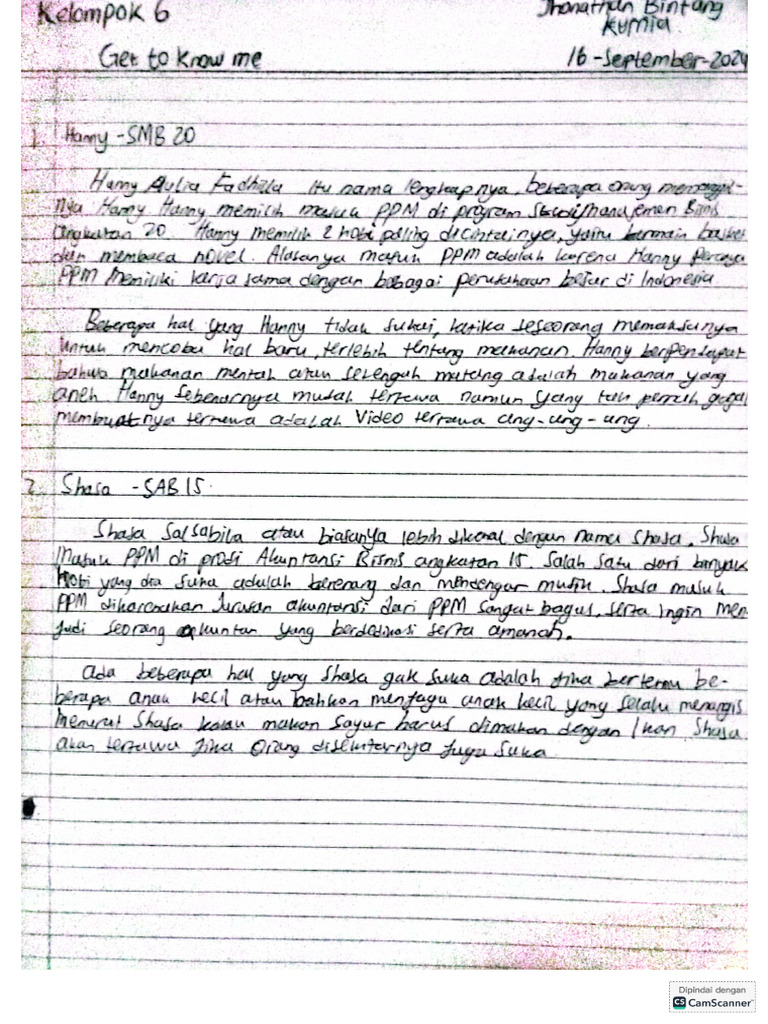 Kelompok 6
Jhonathan Bintang
Kurnia
Get to know me
16 - September - 2024
1. Hanny - SMB 20
Hanny Aulia Fadhila itu nama lengkapnya, beberapa orang memanggil-
nya Hanny Hanny memilih masuk PPM di program Studi Manajemen Bisnis
angkatan 20. Hanny memilih 2 hobi paling dicintainya, yaitu bermain basket
dan membaca novel. Alasanya masuk PPM adalah karena Hanny Percaya
PPM Memiliki kerja sama dengan bebagai perusahaan besar di Indonesia.
Beberapa hal yang Hanny tidak sukai, ketika seseorang memaksanya
untuk mencoba hal baru, terlebih tentang makanan. Hanny berpendapat
bahwa makanan mentah atau setengah matang adalah makanan yang
aneh Hanny sebenarnya mudah tertawa namun yang tak pernah gagal
membuatnya tertawa adalah Video tertawa ang-ung-ung.
2. Shasa - SAB 15.
Shasa Salsabila atau biasanya lebih dikenal dengan nama shasa. Shasa
Masuk PPM di prodi Akuntansi Bisnis angkatan 15. Salah satu dari banyak
Hobi yang dia suka adalah berenang dan mendengar musik. Shasa masuk
PPM dikarenakan Jurusan akuntansi dari PPM sangat bagus, serta Ingin Men
Jadi seorang akuntan yang berdedikasi serta amanah.
Ada beberapa hal yang Shasa gak suka adalah Jika bertemu be-
berapa anak kecil atau bahkan menjaga anak kecil yang selalu menangis
Menurut Shasa kalau makan sayur harus dimakan dengan Ikan. Shasa
akan tertawa Jika Orang disekitarnya Juga Suka.
Dipindai dengan
CS CamScanner